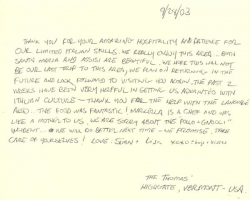 9/28/03
THANK YOU FOR YOUR AMAZING HOSPITALITY AND PATIENCE FOR
OUR LIMITED ITALIAN SKILLS. WE REALLY ENJOY THIS AREA. BOTH
SANTA MARIA AND ASSISI ARE BEAUTIFUL. WE HOPE THIS WILL NOT
BE OUR LAST TRIP TO THIS AREA, WE PLAN ON RETURNING IN THE
FUTURE AND LOOK FORWARD TO VISITING YOU AGAIN. THE PAST 2
WEEKS HAVE BEEN VERY HELPFUL IN GETTING US ACQUAINTED WITH
ITALIAN CULTURE - THANK YOU FOR THE HELP WITH THE LANGUAGE
ALSO. THE FOOD WAS FANTASTIC! MARCELLA IS A CHEF AND WAS
LIKE A MOTHER TO US. WE ARE SORRY ABOUT THE
INCIDENT. WE WILL DO BETTER NEXT TIME - WE PROMISE. TAKE
CARE OF YOURSELVES! LOVE, SEAN + LISA
THE THOMAS'
HIGHGATE, VERMONT - USA